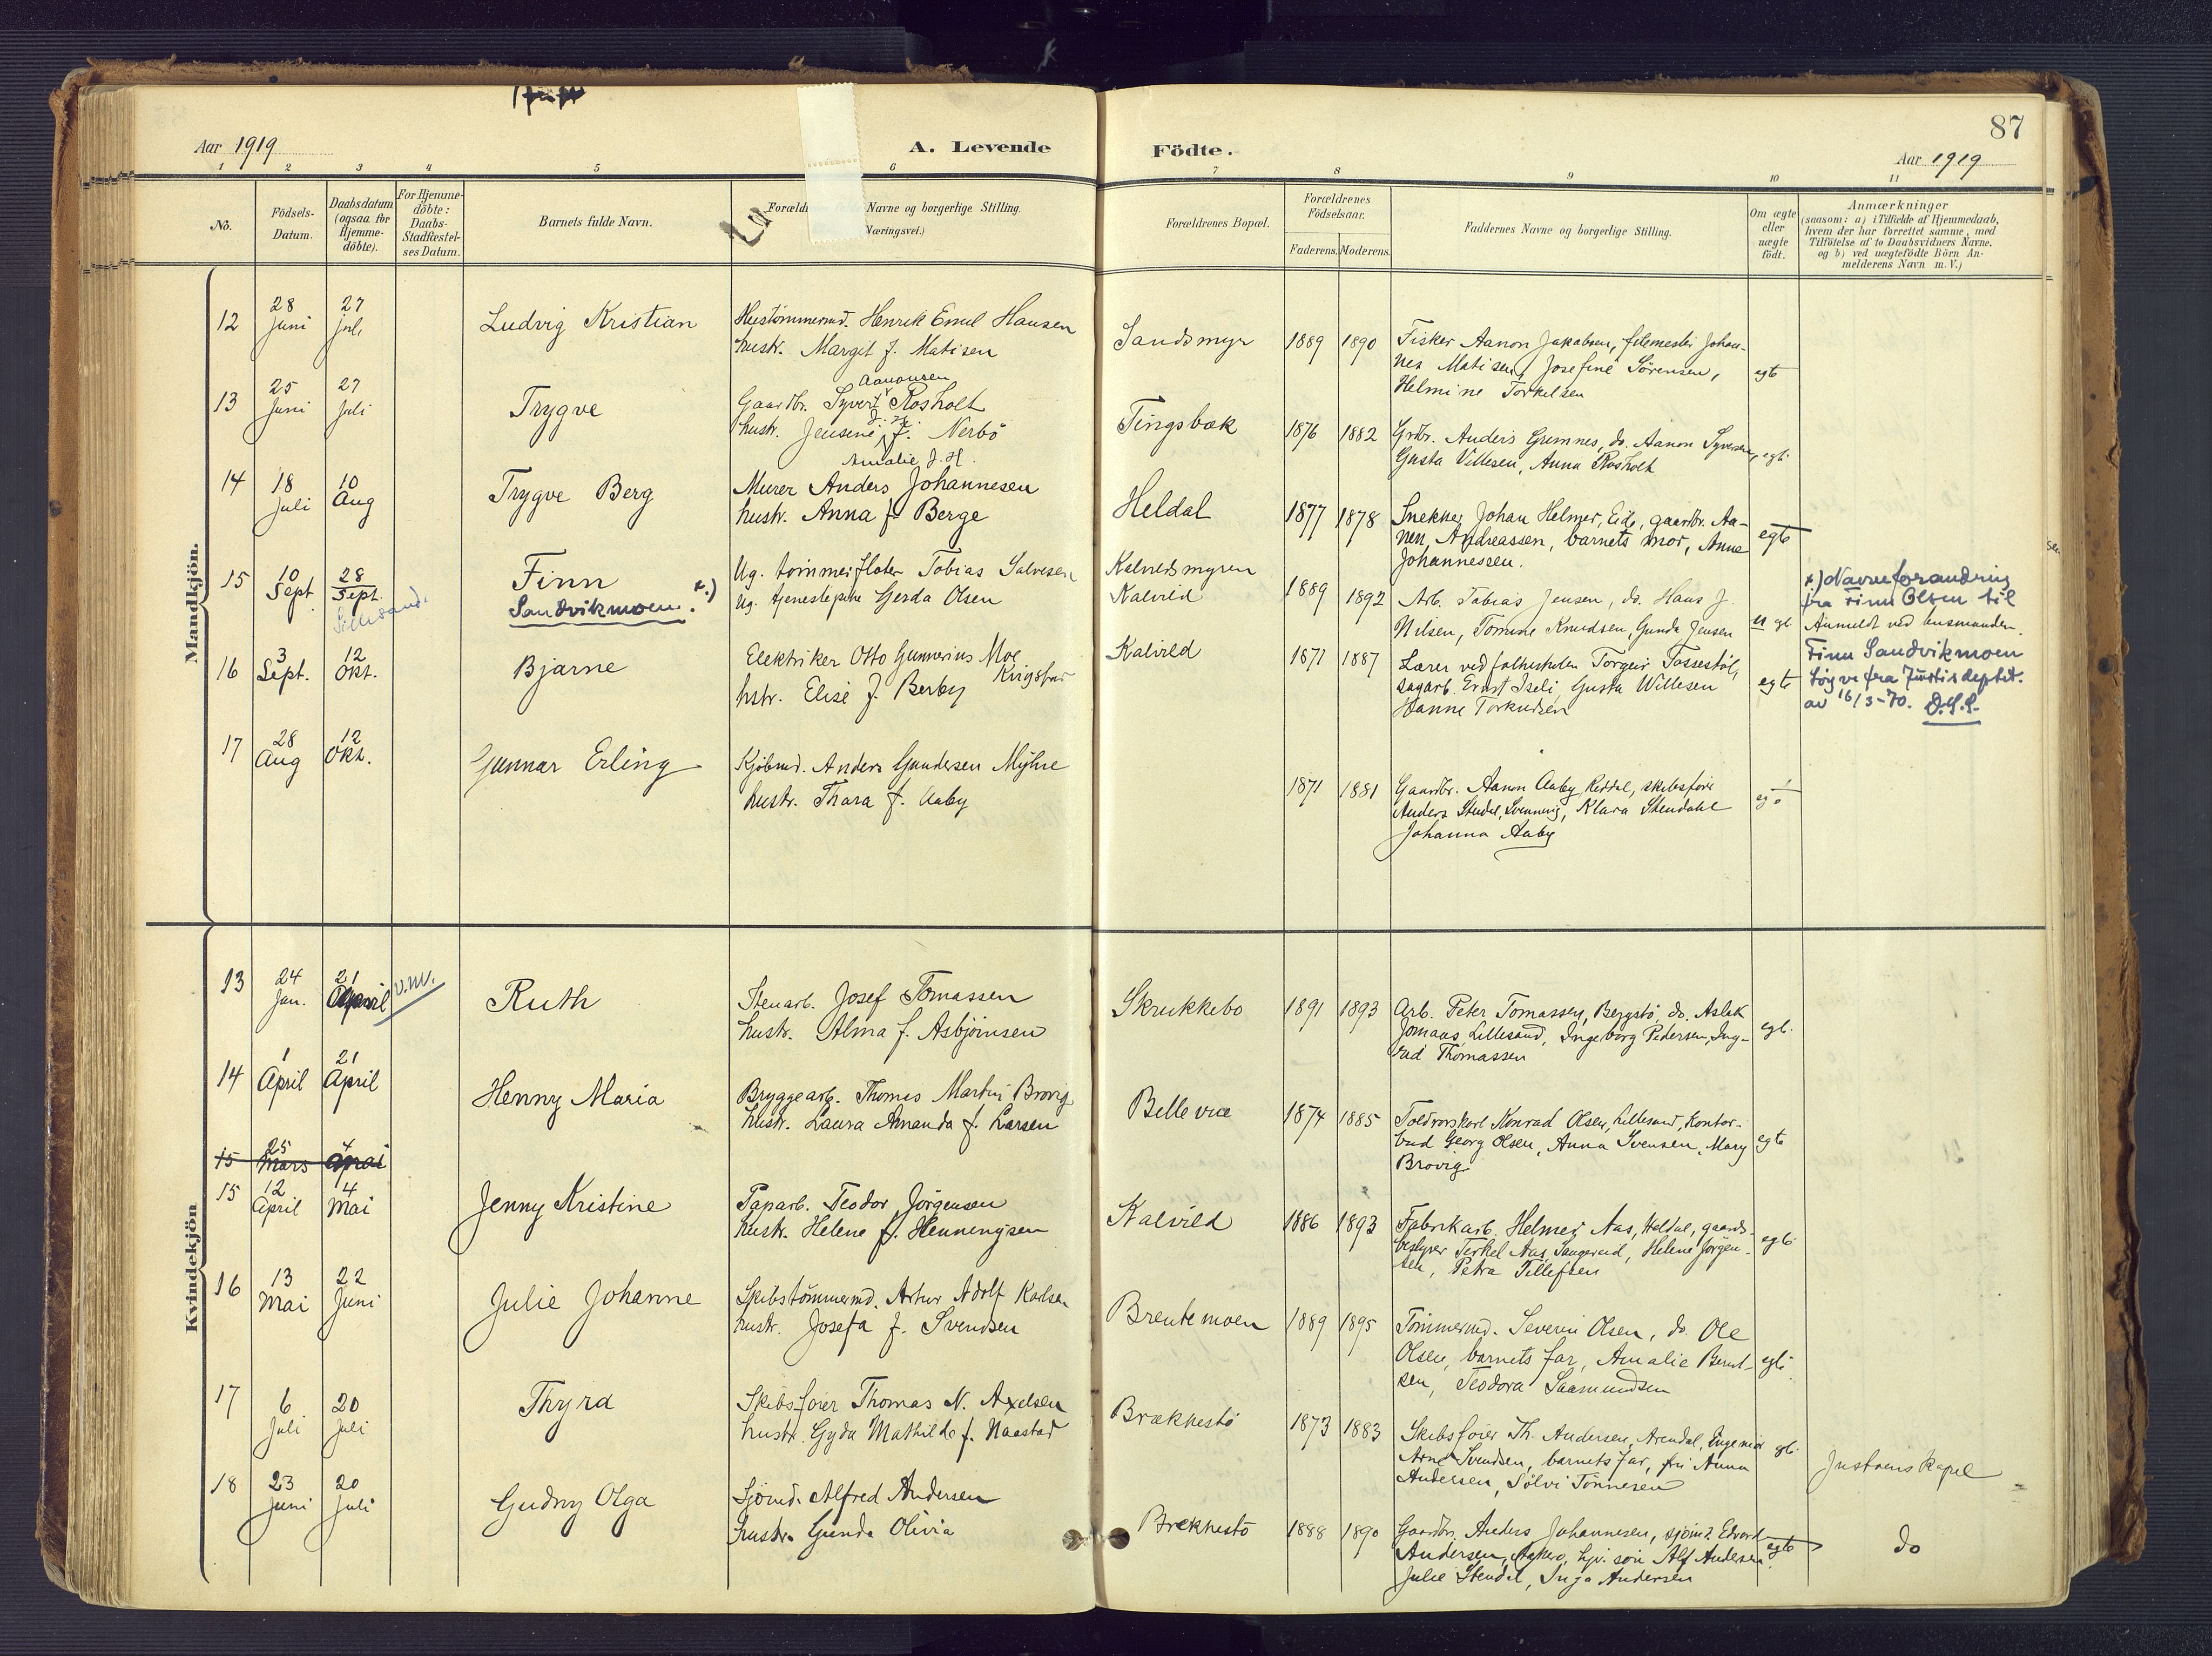 Aar 1919
A. Levende
Födte.
87
Aar 1919
1 2 3 4 5 6 7 8 9 10 11
No.
Födsels-
Datum.
Daabsdatum
(ogsaa for
Hjemme-
döbte).
For Hjemme-
döbte:
Daabs-
Stadfæstel-
ses Datum.
Barnets fulde Navn.
Forældr Navne og borgerlige Stilling.
Næringsvei.)
Forældrenes Bopæl.
Forældrenes
Födselsaar.
Faderens. Moderens.
Faddernes Navne og borgerlige Stilling.
Om ægte
eller
uægte
födt.
Anmærkninger
(saasom: a) i Tilfælde af Hjemmedaab,
hvem der har forrettet samme, med
Tilföielse af to Daabsvidners Navne.
og b) ved uægtefödte Börn An-
melderens Navn m. V.)
Mandkjön.
12
28
Juni
27
juli
Ludvig Kristian
Hustömmermd. Henrik Emil Hansen
hustr. Margit f. Matisen
Sandsmyr
1889 1890
Fisker Aanon Jakobsen, filemester Johan-
nes Matisen, Josefine Sörensen,
Helmine Torkelsen
egte
13
25
Juni
27
Juli
Trygve
Aanonsen
Gaardbr. Syvert Rosholt
hustr. Jensine f. Nerbö
Tingsbæk
1876 1882
Grdbr. Anders Grimnes, do. Aanon Syversen,
Gusta Villesen, Anna Rosholt
egt.
14
18
Juli
10
Aug
Trygve Berg
Amalie J. H.
Murer Anders Johannesen
hustr. Anna f. Berge
Heldal
1877 1878
Snekker Johan Helmer, Eide, gaardbr. Aa-
nen Andreassen, barnets mor, Anna
Johannessen.
egte
15
10
Sept
28
Sept.
Lillesand.
Finn
Sandvikmoen. x.)
Ug. tømmerfløter Tobias Salvesen
ug. tjenestepike Gerda Olsen
Kalvildsmyren
Kalvild
1889 1892
Arb. Tobias Jensen, do. Hans J.
Nilsen, Tomine Knudsen, Gunda Jensen
u gt.
x) Navneforandring
fra Finn Olsen til
Anmeldt ved husmanden.
Finn Sandvikmoen
fra Justisdeptet.
av 16/3-70. D.S.S.
16
3
Sept.
12
Okt.
Bjarne
Elektriker Otto Gunnerius Moe
hstr. Elise f. Berby
Kalvild
1871 1887
Lærer ved folkeskolen Torgeir Tossestöl,
sagarb. Ernst Iseli, Gusta Willesen
Hanne Torkildsen
egte
17
28
Aug
12
Okt.
Gunnar Erling
Kjöbmd. Anders Gundersen Myhre
hustr. Thara f. Aaby
1871 1881
Gaardbr. Aanon Aaby Reddal, skibsförer
Anders Stendal, Svennevig, Klara Stendahl
Johanna Aaby
Kvindekjön
13
24
Jan.
21
April
v.m.
Ruth
Stenarb. Josef Tomassen
hustr. Alma f. Asbjörnsen
Skrukkebo
1891 1893
Arb. Peter Tomassen, Bergstö, do. Aslak
Jomaas Lillesand, Ingeborg Pedersen, Ing-
rid Thomassen
egt.
14
1
April
21
April
Henny Maria
Bryggearb. Thomas Martin Brovig
hustr. Laura Amanda f. Larsen
Bellevue
1874 1885
Toldrorskarl Konrad Olsen, Lillesand, Kontor-
bud Georg Olsen, Anna Svensen, Mary
Brovig.
egte
15
25
Mars
4
15
12
April
4
Mai
Jenny Kristine
Paparb. Teodor Jörgensen
hustr. Helene f. Henningsen
Kalvild
1886 1893
Fabrikarb. Helmer Aas, Heldal, gaards-
bestyrer Terkel Aas, Saugerud, Helene Jörgen-
sen, Petra Tellefsen
egt.
16
13
Mai
22
Juni
Julie Johanne
Skibstömmermd. Artur Adolf Karlsen
hustr. Josefa f. Svendsen
Brentemoen
1889 1895
Tömmermd. Severin Olsen, do. Ole
Olsen, barnets far, Amalie Bernt-
sen, Teodora Saamundsen
egt.
17
6
Juli
20
Juli
Thyra
Skibsförer Thomas N. Axelsen
hustr. Gyda Mathilde f. Naastad
Brækkestö
1873 1883
Skibsförer Th. Andersen, Arendal, Ingeniör
Arne Svendsen, barnets far, fru Anna
Andersen, Sölvi Tönnesen
egt.
Justöens Kapel
18
23
Juni
20
Juli
Gudny Olga
Sjömd. Alfred Andersen
hustr. Gunda Olivia
Brekkestö
1888 1890
Gaardbr. Anders Johannesen, sjömd. Edvard
Andersen, Aakerö, hjv. sön Alf Andersen
Julie Stendal, Inga Andersen
egte
do